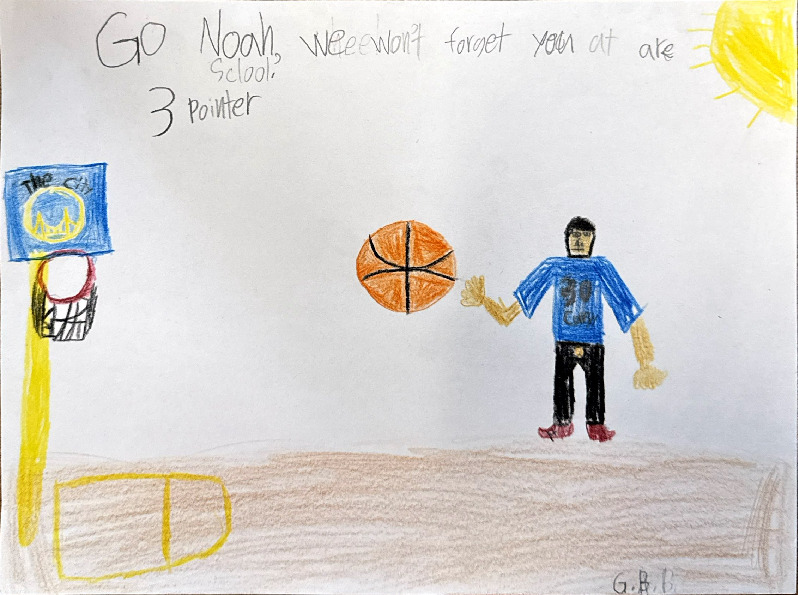 Go Noah, We won't forget you at are
School!
3 pointer
The City
30
Curry
G.B.B.